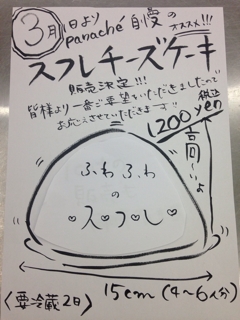 3月1日より
panaché 自慢の
オススメ!!!
スフレチーズケーキ
販売決定!!!
皆様より一番ご要望をいただきましたので
お応えさせていただきます!!
1200yen 税込
高〜いよ
ふわふわ
の
スフレ
15cm (4〜6人分)
〈要冷蔵2日〉